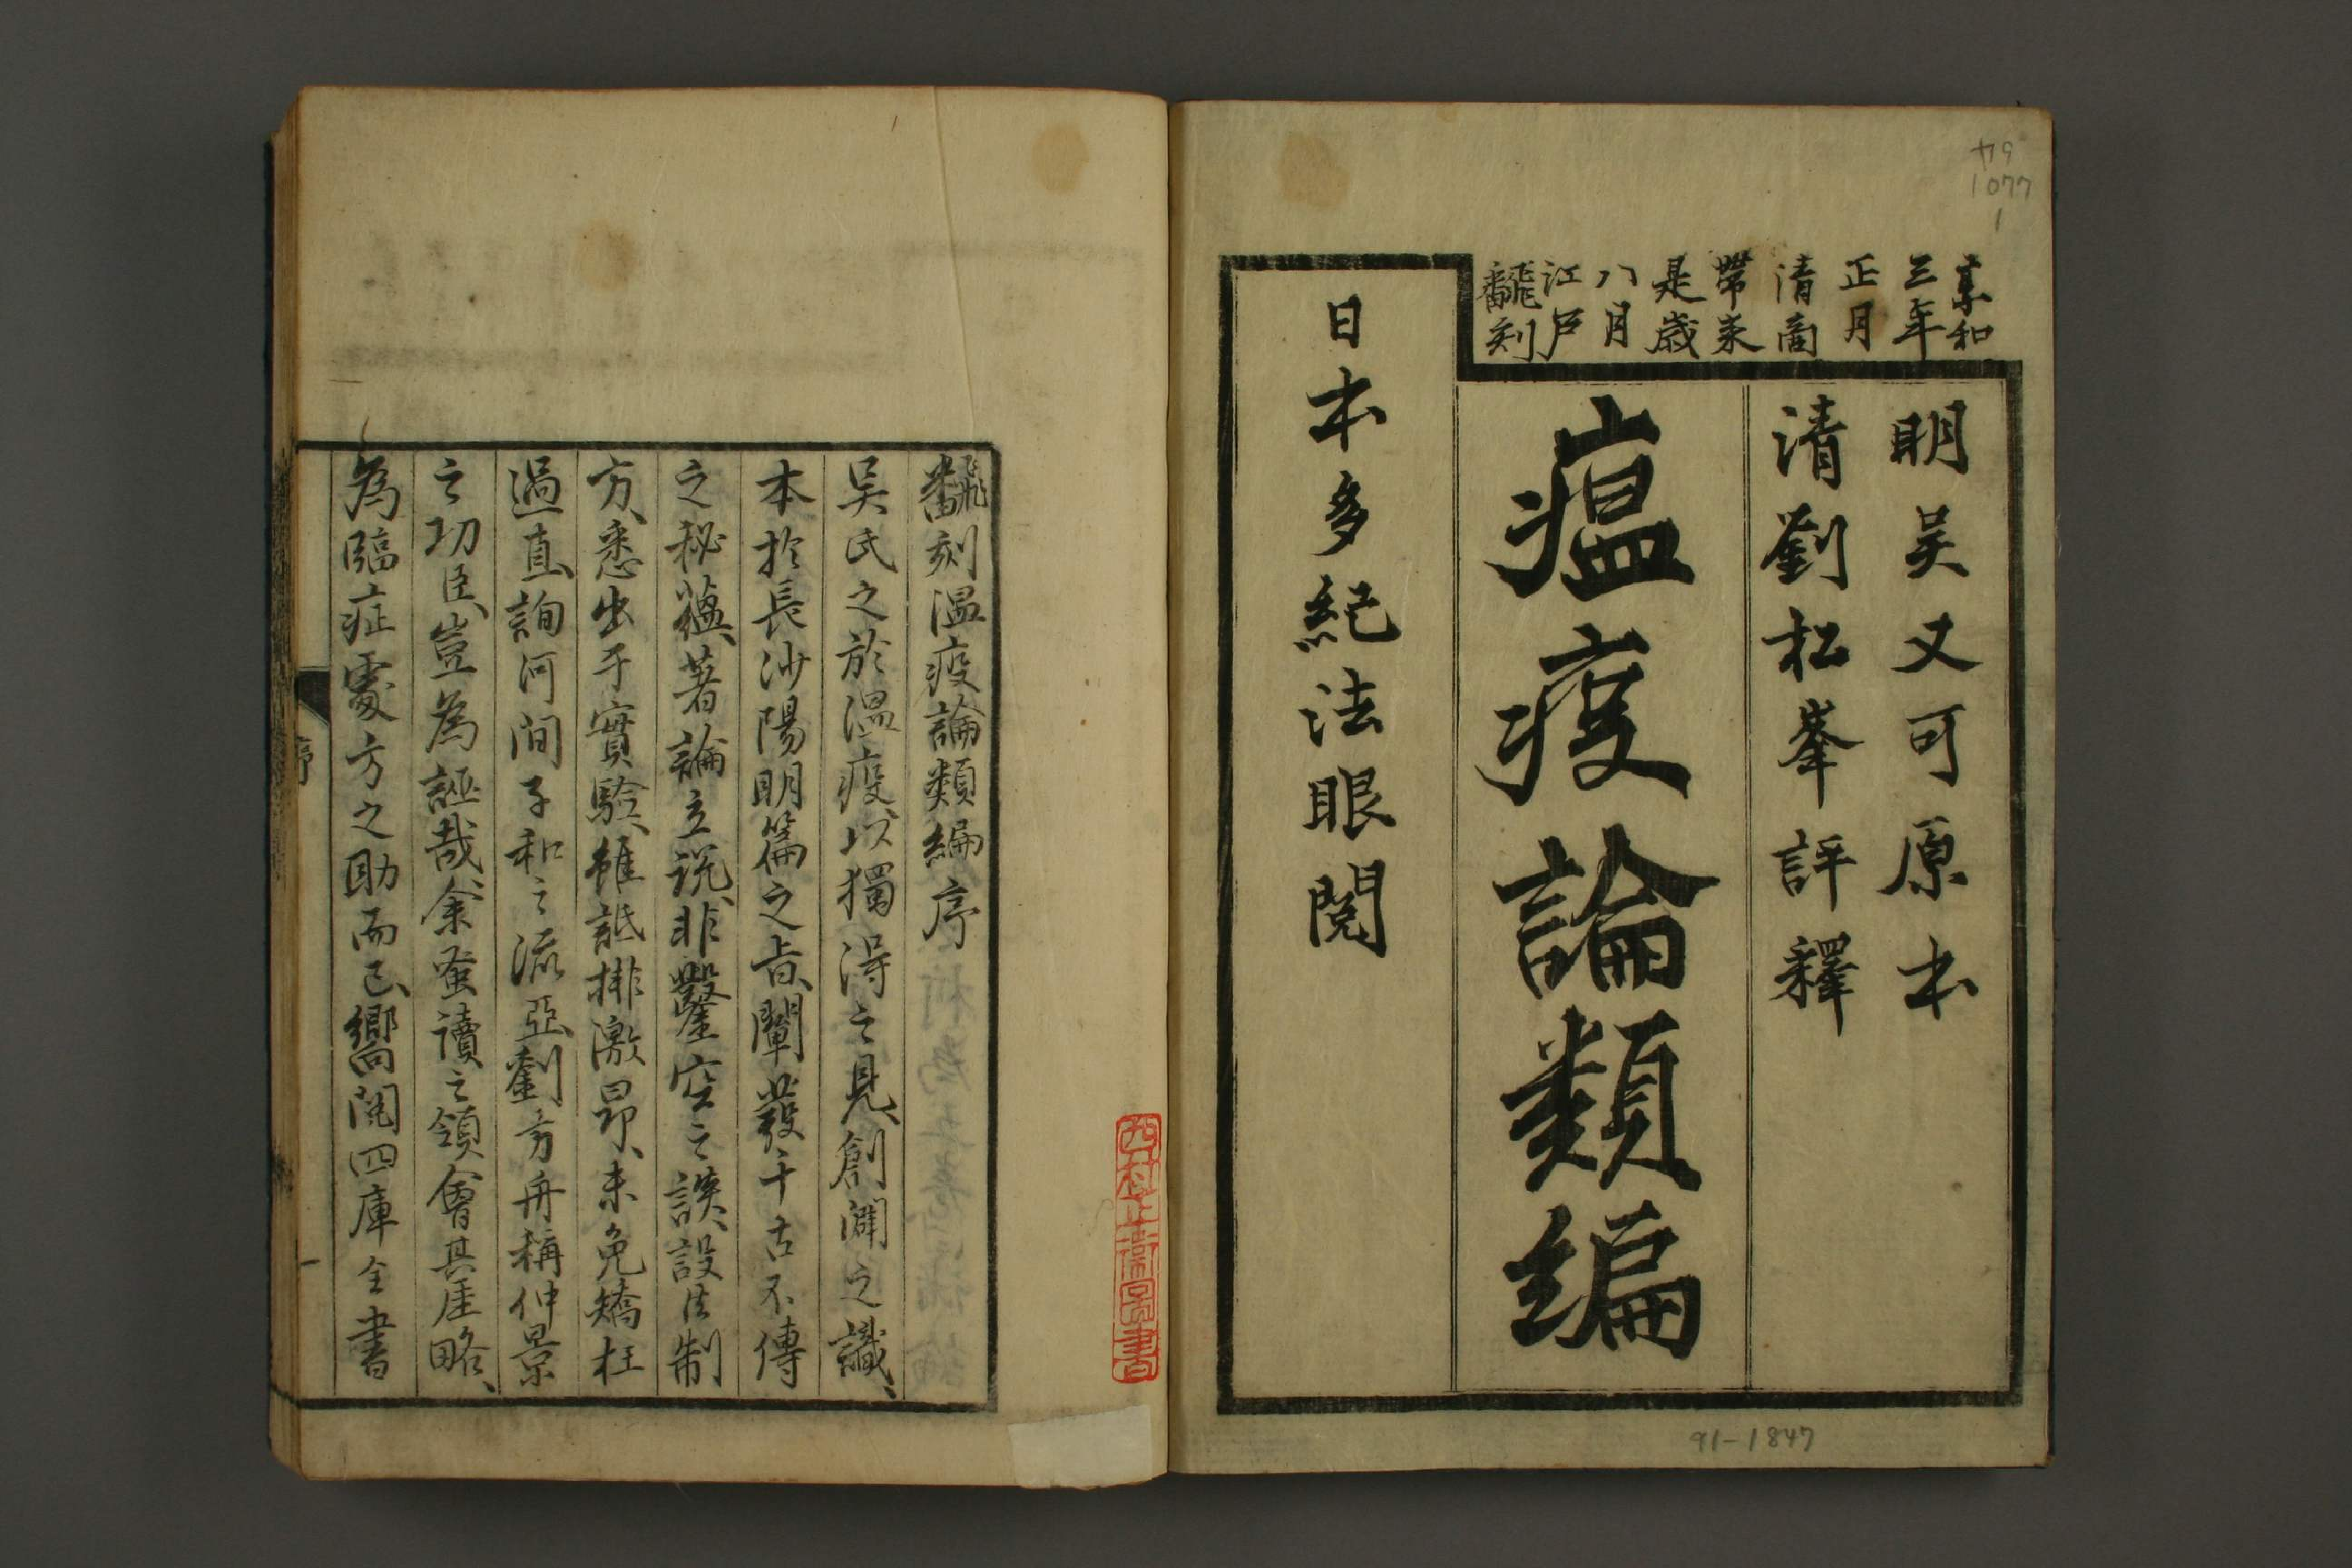 享和
三年
正月
清商
帶来
是歳
八月
江戸
飜刻
明吴又可原本
清劉松峯評釋
瘟疫論類編
日本多紀法眼閲
ヤ9
1077
1
91-1847
飜刻温疫論類編序
吴氏之於温疫、以獨得之見、創闢之識、
本於長沙陽明篇之旨、闡發千古不傳
之秘蘊、著論立説、非鑿空之談、設法制
方、悉出于實驗、雖詆排激昂、未免矯枉
過直、詢河間子和之流亞、劉方舟稱仲景
之功臣、豈為誣哉、余蚤讀之領會其厓略、
為臨症處方之助而已、嚮閲四庫全書
序
一
西村兵衞図書